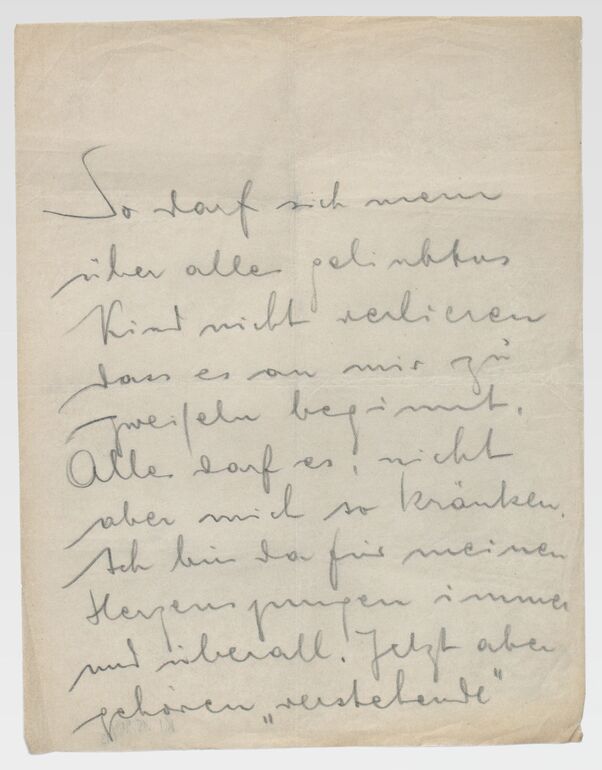 So darf sich mein
über alles geliebtes
Kind nicht verlieren
dass es an mir zu
zweifeln beginnt.
Alles darf es, nicht
aber mich so kränken.
Ich bin da für meinen
Herzensjungen immer
und überall. Jetzt aber
gehören „verstehende"